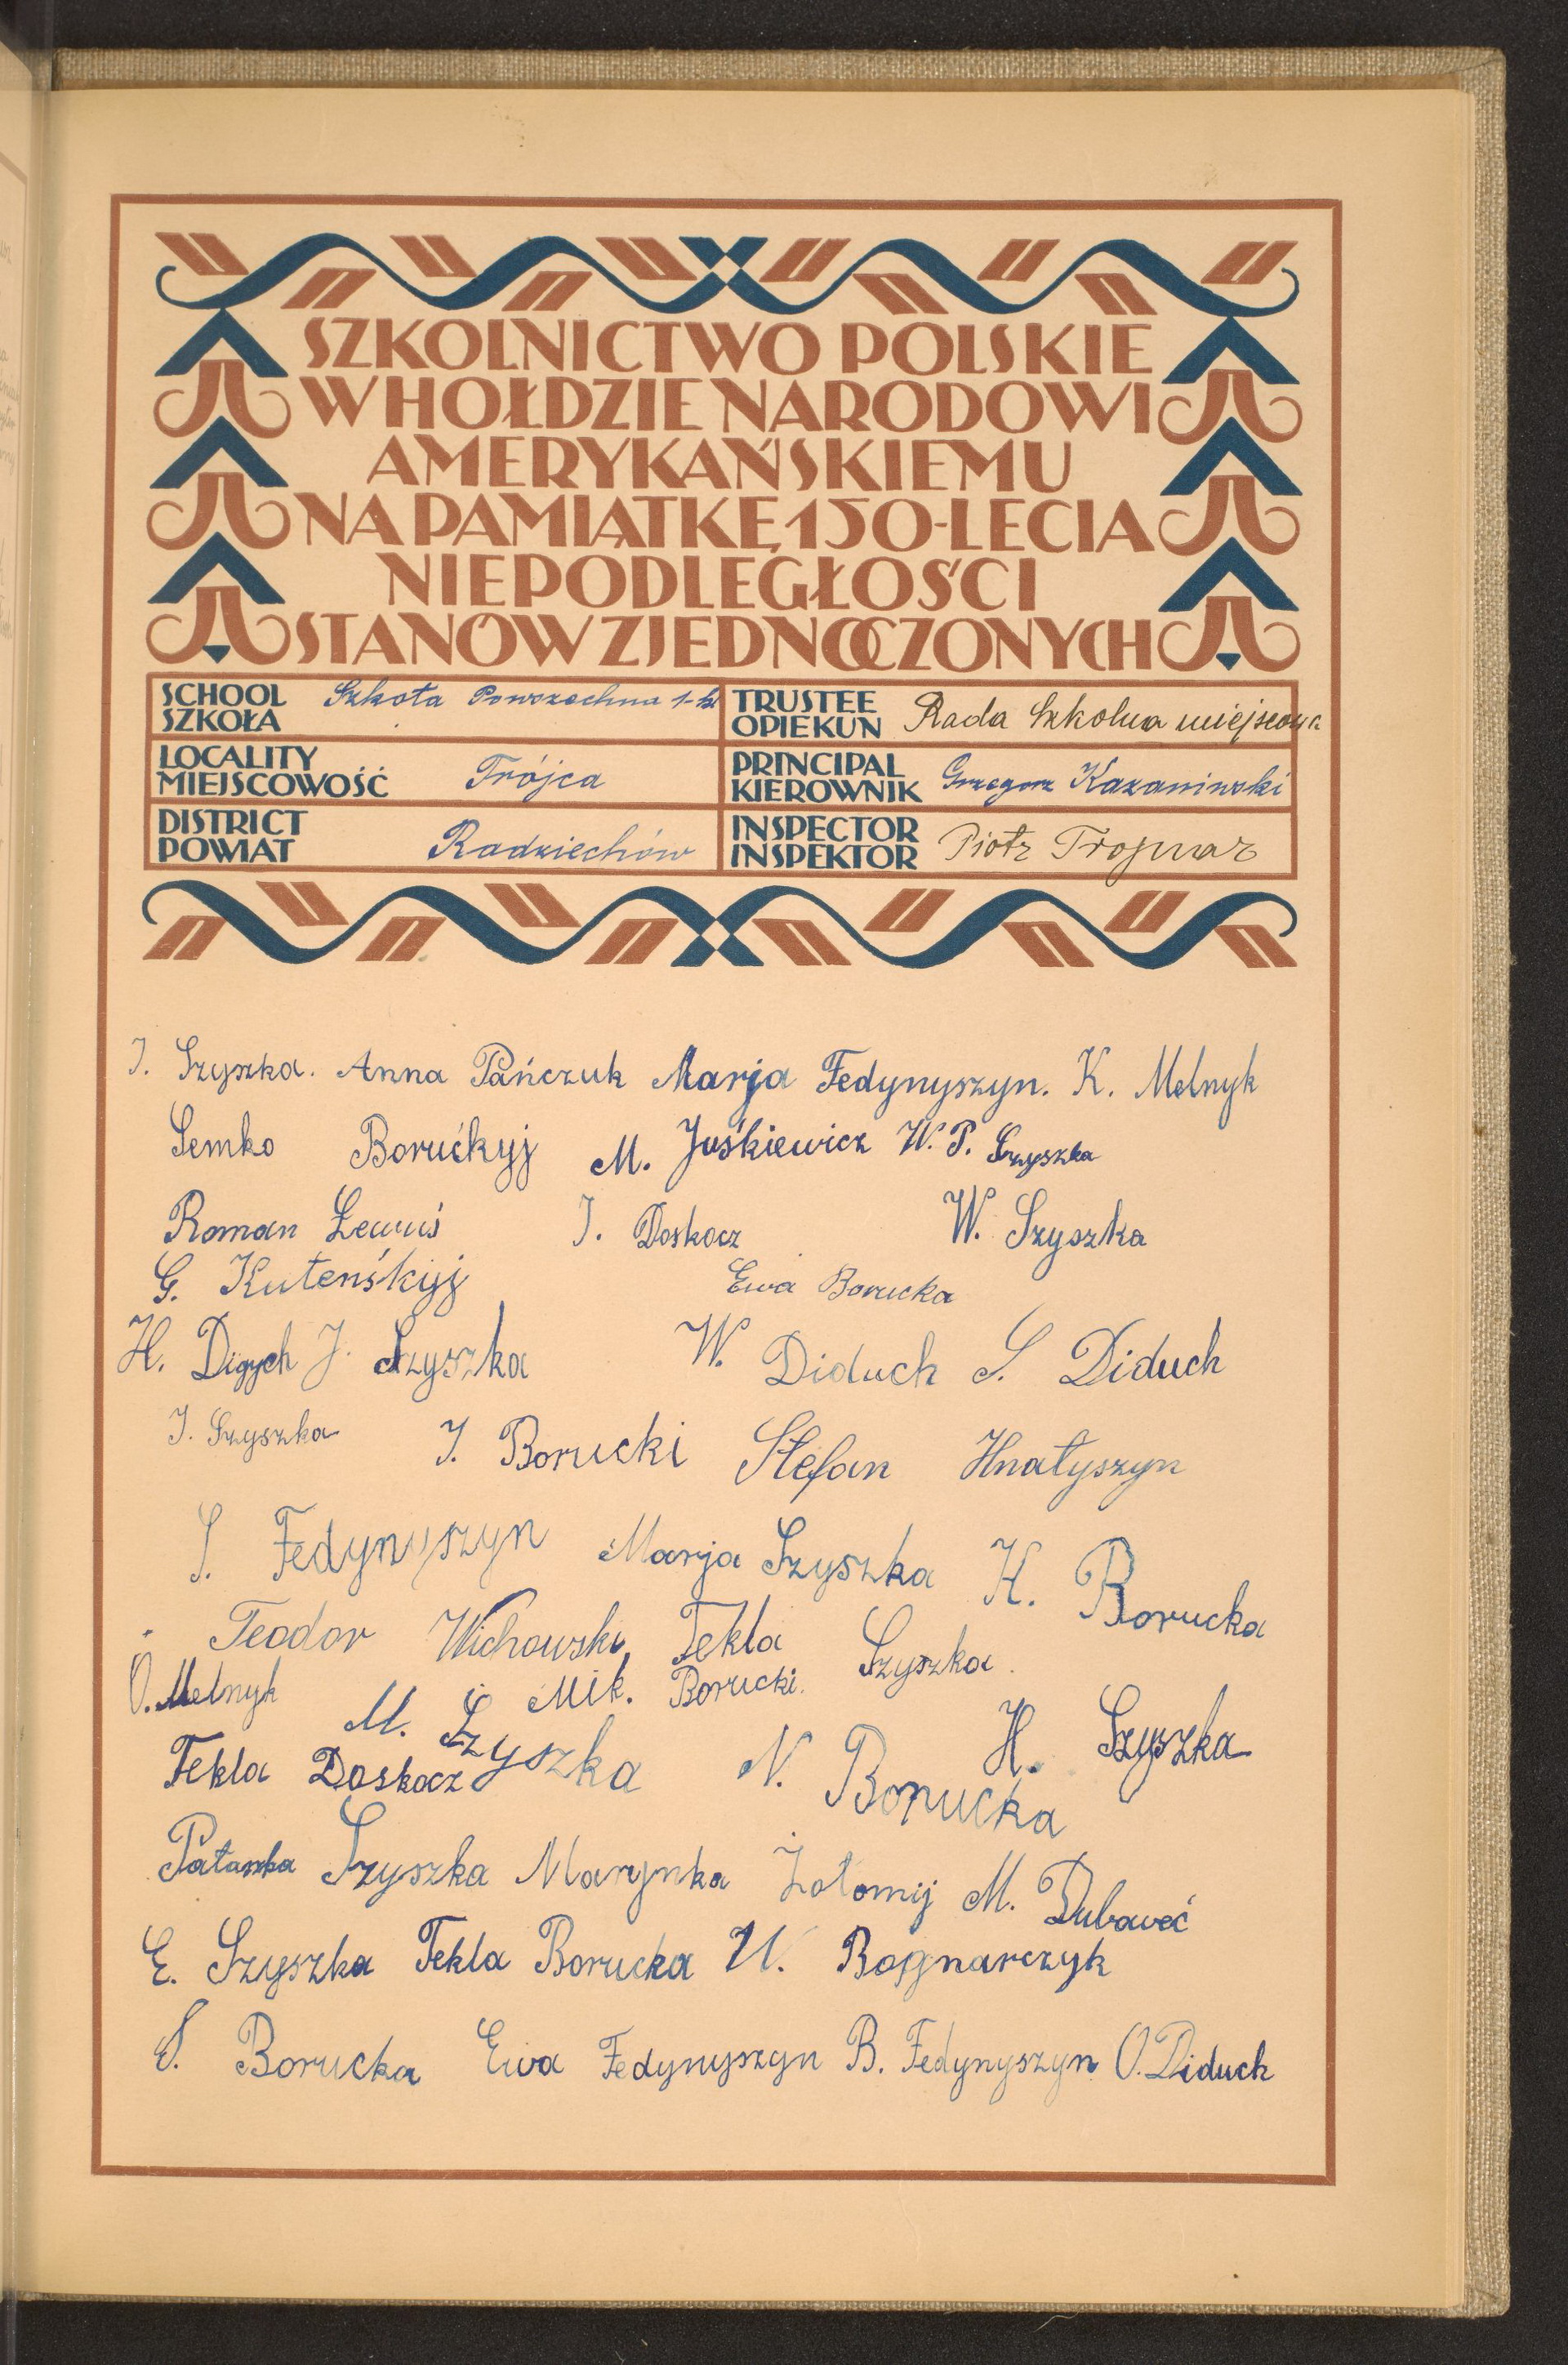 SZKOLNICTWO POLSKIE
W HOŁDZIE NARODOWI
AMERYKAŃSKIEMU
NA PAMIĄTKĘ 150-LECIA
NIEPODLEGŁOŚCI
STANÓW ZJEDNOCZONYCH
SCHOOL SZKOŁA Szkoła Powszechna 1-kl
TRUSTEE OPIEKUN Rada Szkolna miejscowa
LOCALITY MIEJSCOWOŚĆ Trójca
PRINCIPAL KIEROWNIK Grzegorz Kazaniwski
DISTRICT POWIAT Radziechów
INSPECTOR INSPEKTOR Piotr Trojnar
J. Szyszka. Anna Pańczuk Marja Fedynyszyn. K. Melnyk
Semko Borućkyj M. Juśkiewicz W. P. Szyszka
Roman Lewuś J. Doskocz W. Szyszka
G. Kuteńśkyj Ewa Borucka
H. J. Szyszka W. Diduch S. Diduch
J. Szyszka J. Borucki Stefan Hnatyszyn
S. Fedynyszyn Marja Szyszka H. Borucka
Teodor Wichowski, Tekla Szyszka.
O. Melnyk M. Szyszka Mik. Borucki. H. Szyszka
Tekla Doskocz N. Borucka
Pałaszka Szyszka Marynka Żołomij M. Dubaweć
E. Szyszka Tekla Borucka W. Bognarczyk
S. Borucka Ewa Fedynyszyn B. Fedynyszyn O. Diduch